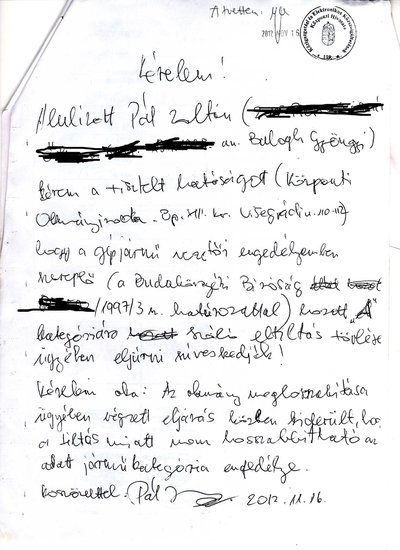 Átvettem:
2012 NOV 16
Közigazgatási és Elektronikus Közszolgáltatások
Központi Hivatala
Kérelem!
Alulírott Pál Zoltán (
an. Balogh Gyöngyi)
kérem a tisztelt hatóságot (Központi
Okmányiroda. Bp. XIII. ker. Visegrádi u. 110-112)
hogy a gépjármű vezetői engedélyemben
szereplő (a Budakörnyéki Bíróság
/1997/3 sz. határozattal) hozott „A"
kategóriára szóló eltiltás törlése
ügyében eljárni szíveskedjék!
Kérelem oka: Az okmány meghosszabítása
ügyében végzett eljárás közben kiderült, ho
a tiltás miatt nem hosszabbítható az
adott jármű kategória engedélye.
Köszönettel: Pál Z
2012.11.16.